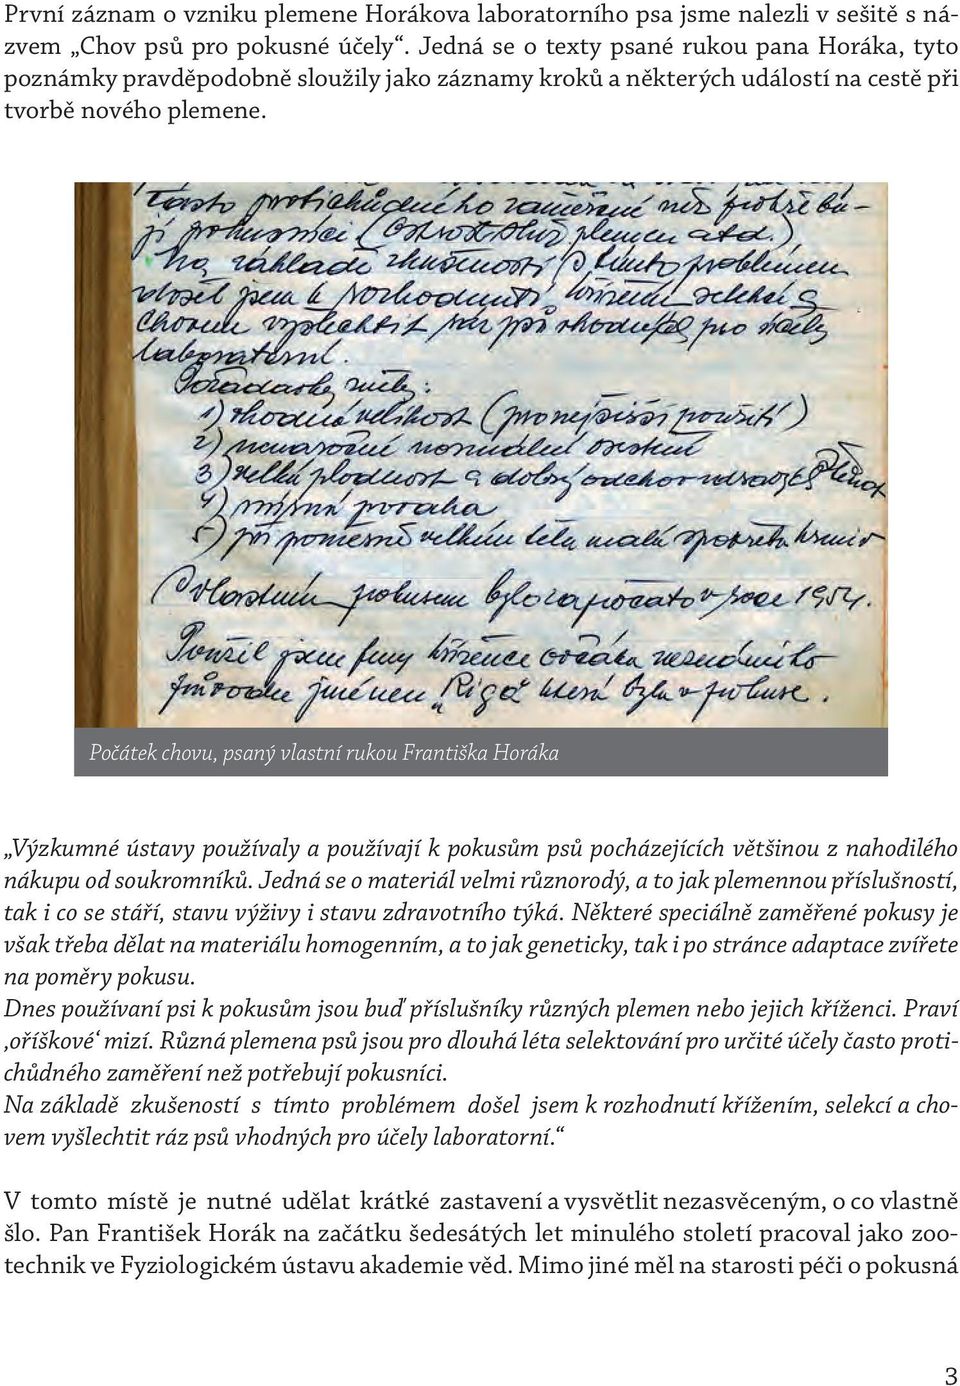 První záznam o vzniku plemene Horákova laboratorního psa jsme nalezli v sešitě s ná-
zvem „Chov psů pro pokusné účely“. Jedná se o texty psané rukou pana Horáka, tyto
poznámky pravděpodobně sloužily jako záznamy kroků a některých událostí na cestě při
tvorbě nového plemene.
často protichůdného zaměření než potřebu-
jí pokusníci (Ostrost služ. plemen atd.)
Na základě zkušeností s tímto problémem
došel jsem k rozhodnutí, křížením, selekcí a
chovem vyšlechtit ráz psů vhodných pro účely
laboratorní.
Požadavky měly:
1) vhodná velikost (pro nejširší použití)
2) nenáročné normální osrstění
3) velká plodnost a dobrý odchov zdravých štěňat
4) mírná povaha
5) při poměrně velkém tělu malá spotřeba krmiv
S vlastním pokusem bylo započato v roce 1954.
Použil jsem feny křížence ovčáka neznámého
původu jménem „Riga“ která byla v pokuse.
Počátek chovu, psaný vlastní rukou Františka Horáka
„Výzkumné ústavy používaly a používají k pokusům psů pocházejících většinou z nahodilého
nákupu od soukromníků. Jedná se o materiál velmi různorodý, a to jak plemennou příslušností,
tak i co se stáří, stavu výživy i stavu zdravotního týká. Některé speciálně zaměřené pokusy je
však třeba dělat na materiálu homogenním, a to jak geneticky, tak i po stránce adaptace zvířete
na poměry pokusu.
Dnes používaní psi k pokusům jsou buď příslušníky různých plemen nebo jejich kříženci. Praví
‚oříškové‘ mizí. Různá plemena psů jsou pro dlouhá léta selektování pro určité účely často proti-
chůdného zaměření než potřebují pokusníci.
Na základě zkušeností s tímto problémem došel jsem k rozhodnutí křížením, selekcí a cho-
vem vyšlechtit ráz psů vhodných pro účely laboratorní.“
V tomto místě je nutné udělat krátké zastavení a vysvětlit nezasvěceným, o co vlastně
šlo. Pan František Horák na začátku šedesátých let minulého století pracoval jako zoo-
technik ve Fyziologickém ústavu akademie věd. Mimo jiné měl na starosti péči o pokusná
3